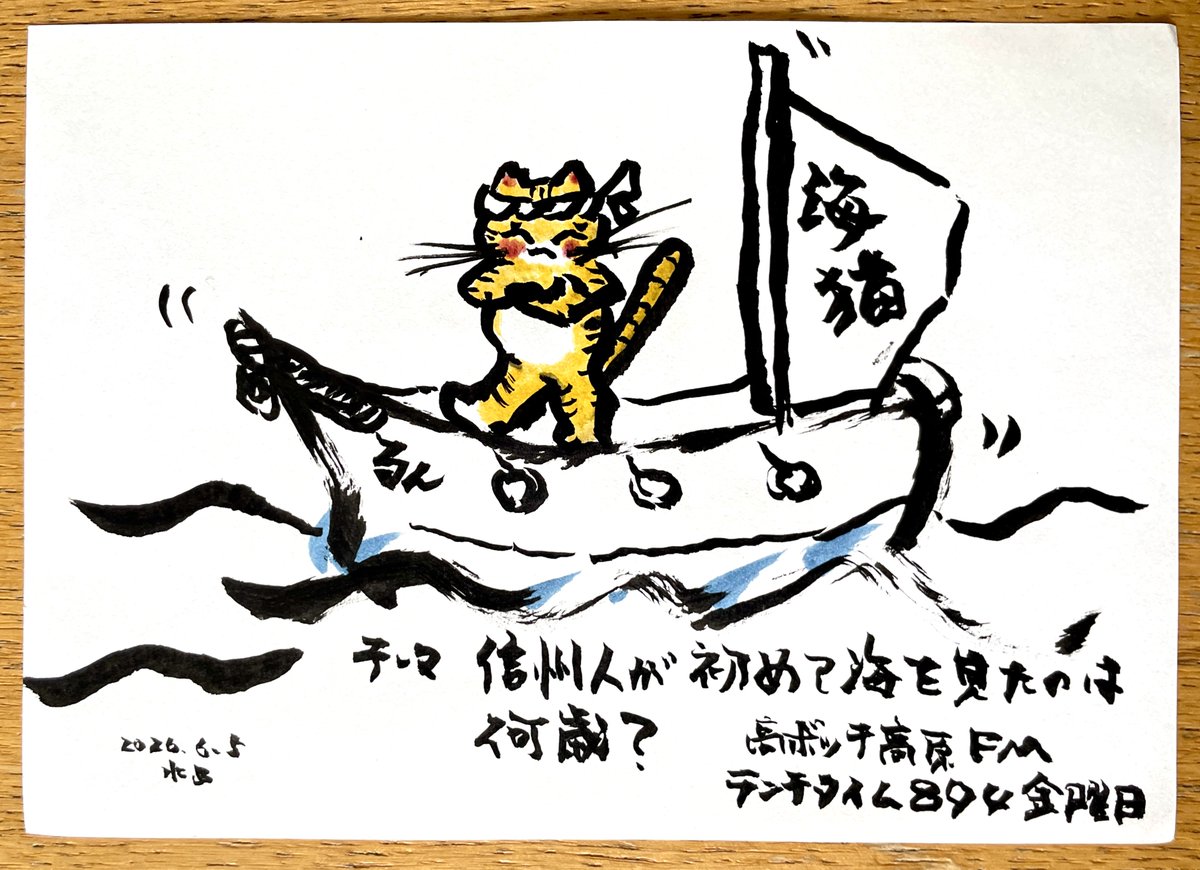 海猫
るん
テーマ 信州人が初めて海を見たのは
何歳?
高ボッチ高原FM
ランチタイム894金曜日
2026.6.5